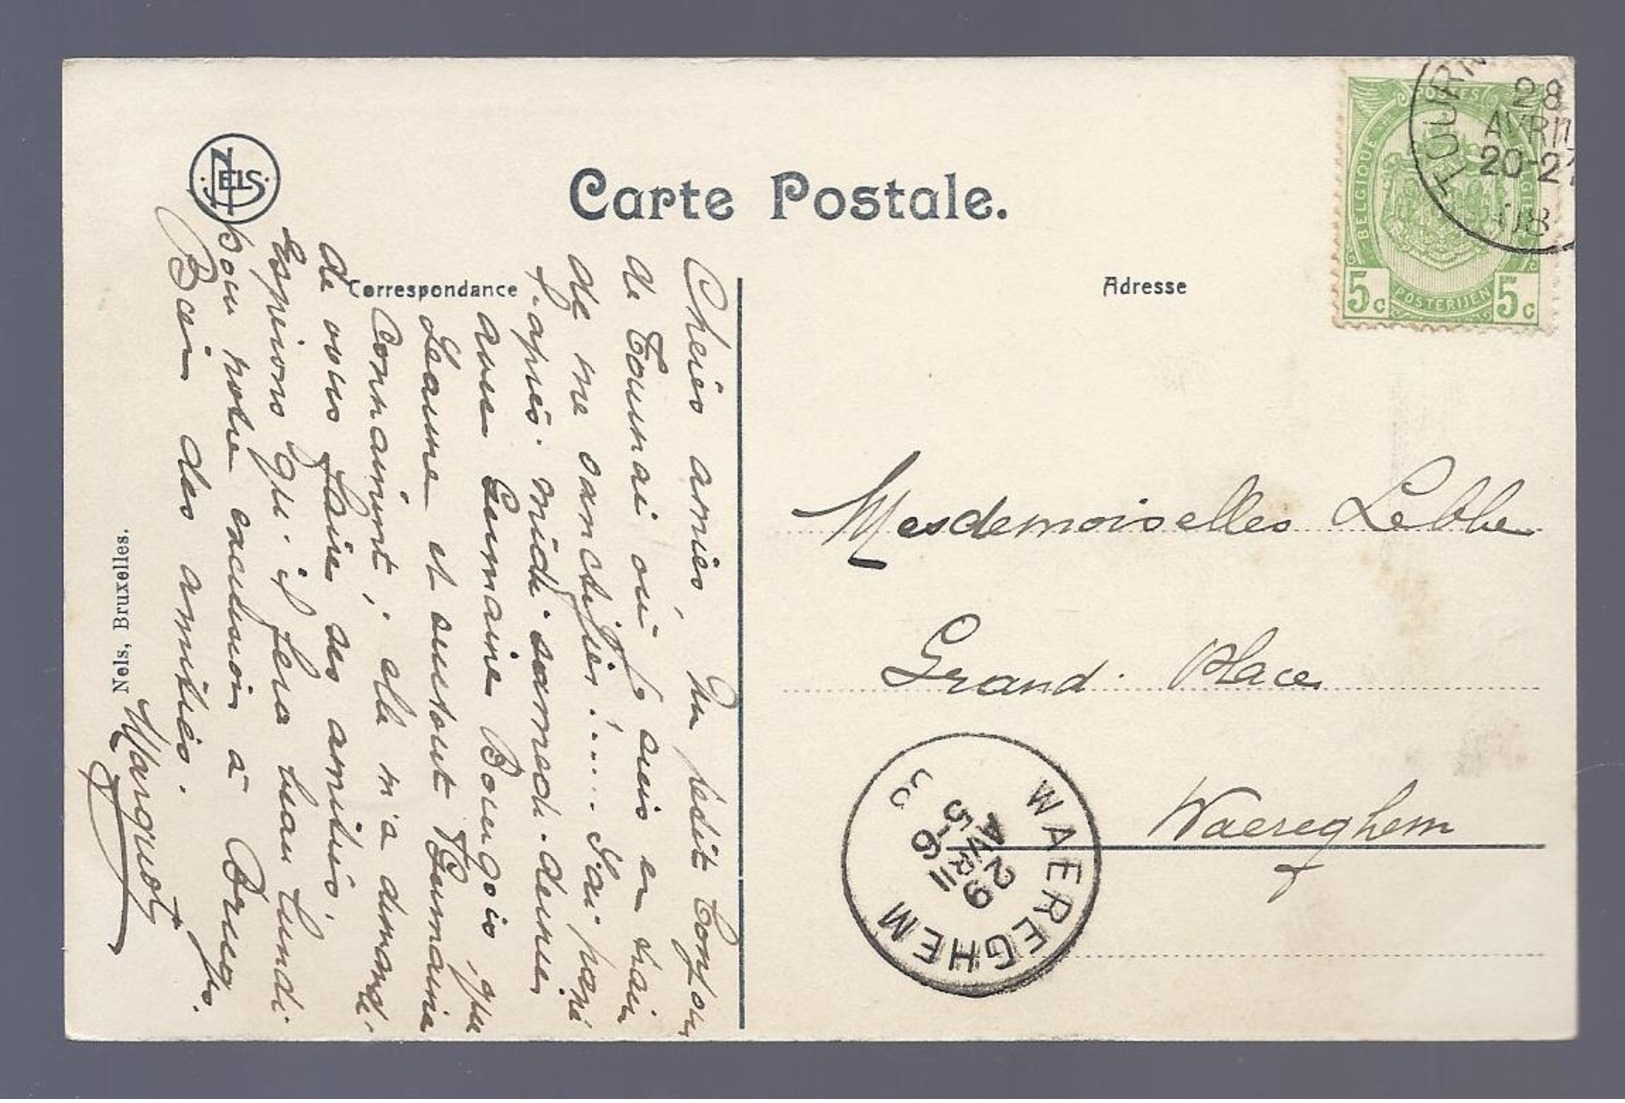 NELS
Carte Postale.
Correspondance
Adresse
Chères amies, Un petit bonjour
de Tournai où je suis en train
de me sanctifier!..... J'ai passé
l'après-midi samedi dernier
avec Germaine Bourgois, que
Jeanne et surtout Germaine
connaissent; elle m'a demandé
de vous faire ses amitiés.
Espérons qu'il fera beau lundi
pour notre excursion à Bruges.
Bien des amitiés.
Marguerite
Nels, Bruxelles.
POSTES
BELGIQUE
POSTERIJEN
5c 5c
TOURN
28
AVRIL
20-2
08
Mesdemoiselles Lebbe
Grand-Place
Waereghem
WAEREGHEM
29
AVRIL
5-6
08